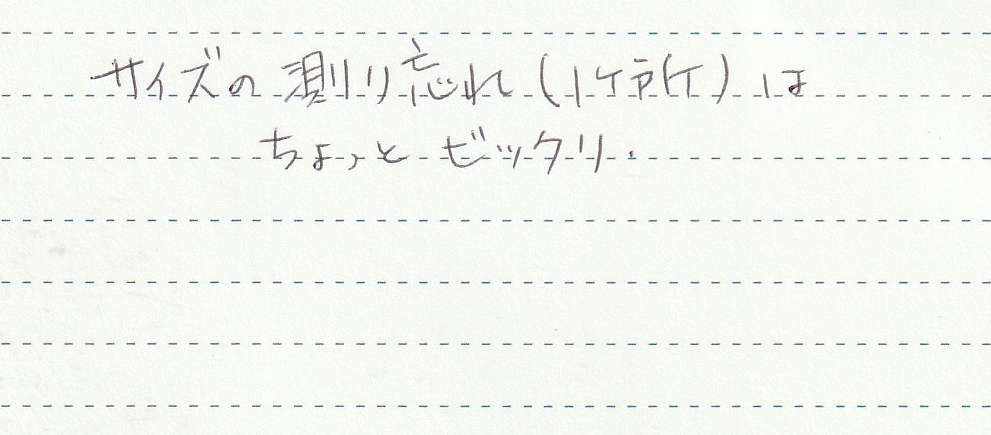 サイズの測り忘れ(1ケ所)は
ちょっとビックリ.